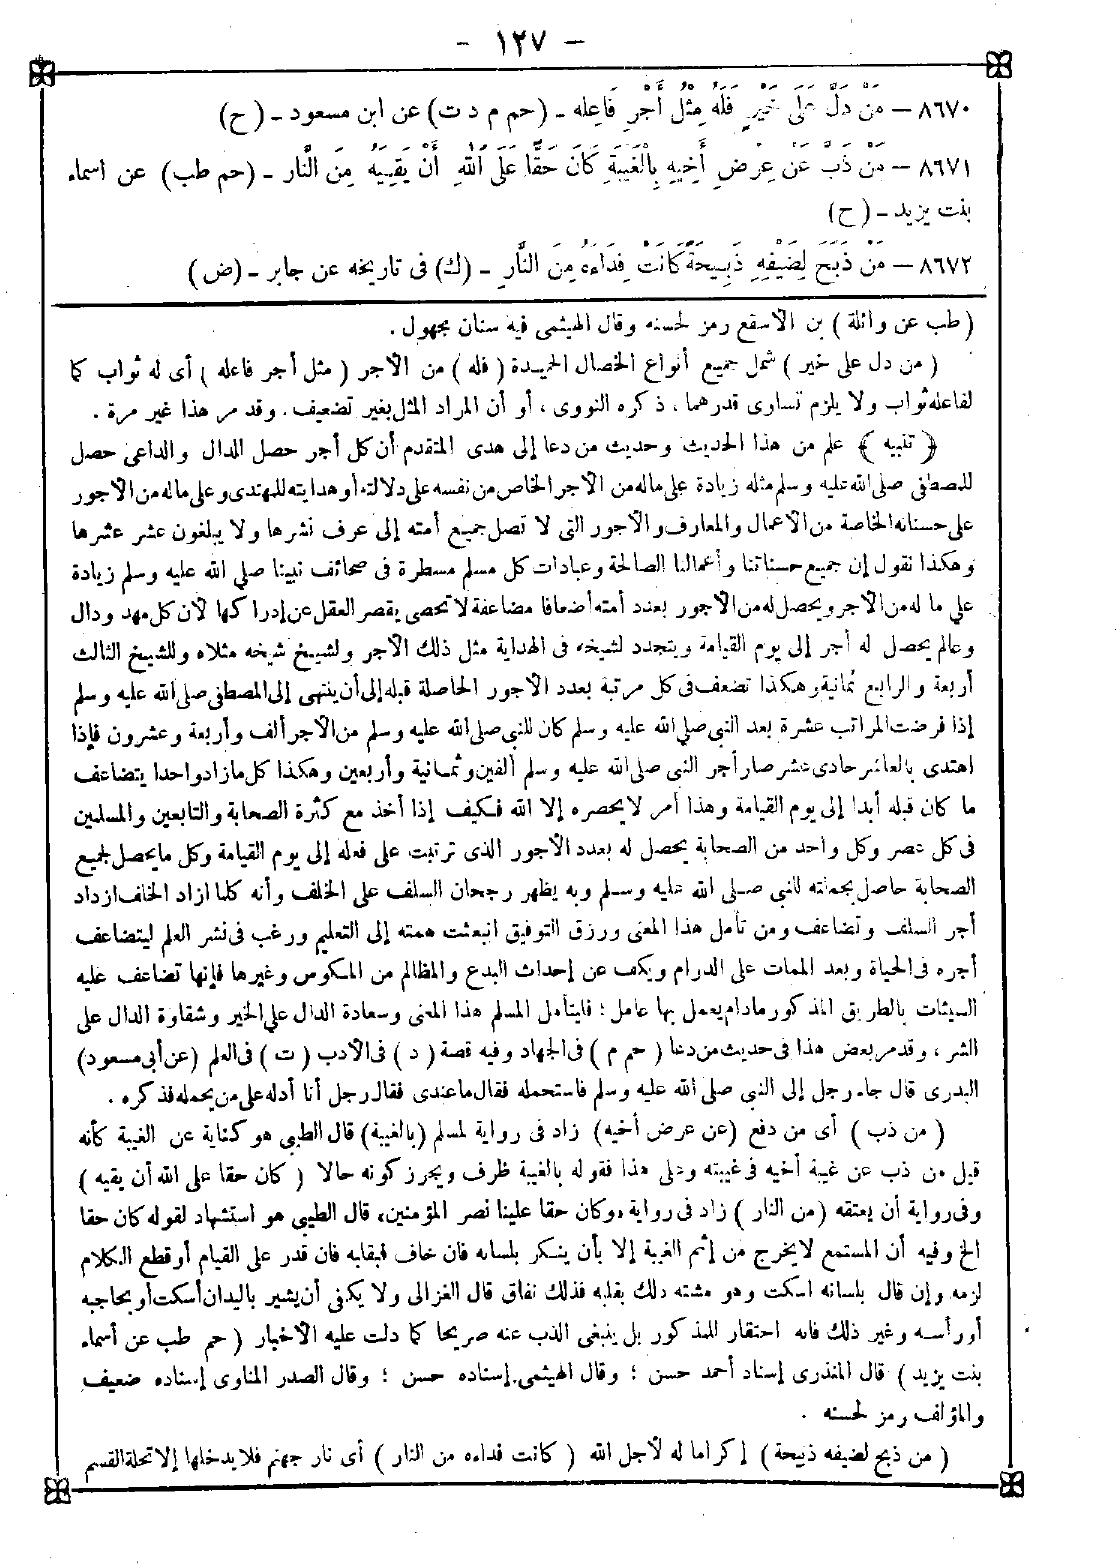 - ١٢٧ -
٨٦٧٠ – مَنْ دَلَّ عَلَى خَيْرٍ فَلَهُ مِثْلُ أَجْرِ فَاعِلِهِ - (حم م د ت) عن ابن مسعود - (ح)
٨٦٧١ – مَنْ ذَبَّ عَنْ عِرْضِ أَخِيهِ بِالْغَيْبَةِ كَانَ حَقًّا عَلَى اللهِ أَنْ يَقِيَهُ مِنَ النَّار - (حم طب) عن اسماء
بنت يزيد - (ح)
٨٦٧٢ – مَنْ ذَبَحَ لِضَيْفِهِ ذَبِيحَةً كَانَتْ فِدَاءَهُ مِنَ النَّارِ - (ك) فى تاريخه عن جابر - (ض)
(طب عن واثلة) بن الأسقع رمز لحسنه وقال الهيثمى فيه سنان مجهول .
(من دل على خير) شمل جميع أنواع الخصال الحميدة (فله) من الأجر (مثل أجر فاعله) أى له ثواب كما
لفاعله ثواب ولا يلزم تساوى قدرهما، ذكره النووى، أو أن المراد المثل بغير تضعيف. وقد مر هذا غير مرة .
﴿ تنبيه ﴾ علم من هذا الحديث وحديث من دعا إلى هدى المتقدم أن كل أجر حصل الدال والداعى حصل
للمصطفى صلى الله عليه وسلم مثله زيادة على ماله من الأجر الخاص من نفسه على دلالته أو هدايته للمهتدى وعلى ماله من الأجور
على حسناته الخاصة من الأعمال والمعارف والأجور التى لا تصل جميع أمته إلى عرف نشرها ولا يبلغون عشر عشرها
وهكذا نقول إن جميع حسناتنا وأعمالنا الصالحة وعبادات كل مسلم مسطرة فى صحائف نبينا صلى الله عليه وسلم زيادة
على ما له من الأجر ويحصل له من الأجور بعدد أمته أضعافا مضاعفة لا تحصى يقصر العقل عن إدراكها لأن كل مهد ودال
وعالم يحصل له أجر إلى يوم القيامة ويتجدد لشيخه فى الهداية مثل ذلك الأجر ولشيخ شيخه مثلاه وللشيخ الثالث
أربعة والرابع ثمانية وهكذا تضعف فى كل مرتبة بعدد الأجور الحاصلة قبله إلى أن ينتهى إلى المصطفى صلى الله عليه وسلم
إذا فرضت المراتب عشرة بعد النبى صلى الله عليه وسلم كان للنبى صلى الله عليه وسلم من الأجر ألف وأربعة وعشرون فإذا
اهتدى بالعاشر حادى عشر صار أجر النبى صلى الله عليه وسلم ألفين وثمانية وأربعين وهكذا كل ما زاد واحدا يتضاعف
ما كان قبله أبدا إلى يوم القيامة وهذا أمر لا يحصره إلا الله فكيف إذا أخذ مع كثرة الصحابة والتابعين والمسلمين
فى كل عصر وكل واحد من الصحابة يحصل له بعدد الأجور الذى ترتبت على فعله إلى يوم القيامة وكل ما يحصل لجميع
الصحابة حاصل بجملته للنبى صلى الله عليه وسلم وبه يظهر رجحان السلف على الخلف وأنه كلما ازاد الخلف ازداد
أجر السلف وتضاعف ومن تأمل هذا المعنى ورزق التوفيق انبعثت همته إلى التعليم ورغب فى نشر العلم ليتضاعف
أجره فى الحياة وبعد الممات على الدوام ويكف عن إحداث البدع والمظالم من المكوس وغيرها فإنها تضاعف عليه
السيئات بالطريق المذكور مادام يعمل بها عامل ؛ فليتأمل المسلم هذا المعنى وسعادة الدال على الخير وشقاوة الدال على
الشر، وقد مر بعض هذا فى حديث من دعا (حم م) فى الجهاد وفيه قصة (د) فى الأدب (ت) فى العلم (عن أبى مسعود)
البدرى قال جاء رجل إلى النبى صلى الله عليه وسلم فاستحمله فقال ما عندى فقال رجل أنا أدله على من يحمله فذكره .
(من ذب) أى من دفع (عن عرض أخيه) زاد فى رواية لمسلم (بالغيبة) قال الطيبى هو كناية عن الغيبة كأنه
قيل من ذب عن غيبة أخيه فى غيبته وعلى هذا فقوله بالغيبة ظرف ويجوز كونه حالا (كان حقا على الله أن يقيه)
وفى رواية أن يعتقه (من النار) زاد فى رواية، وكان حقا علينا نصر المؤمنين، قال الطيبى هو استشهاد لقوله كان حقا
الخ وفيه أن المستمع لا يخرج من إثم الغيبة إلا بأن ينكر بلسانه فان خاف فبقلبه فان قدر على القيام أو قطع الكلام
لزمه وإن قال بلسانه اسكت وهو مشته ذلك بقلبه فذلك نفاق قال الغزالى ولا يكفى أن يشير باليد أن أسكت أو بحاجبه
أو رأسه وغير ذلك فانه احتقار للمذكور بل ينبغى الذب عنه صريحا كما دلت عليه الأخبار (حم طب عن أسماء
بنت يزيد) قال المنذرى إسناد أحمد حسن ؛ وقال الهيثمى إسناده حسن ؛ وقال الصدر المناوى إسناده ضعيف
والمؤلف رمز لحسنه .
(من ذبح لضيفه ذبيحة) إكراما له لأجل الله (كانت فداءه من النار) أى نار جهنم فلا يدخلها إلا تحلة القسم